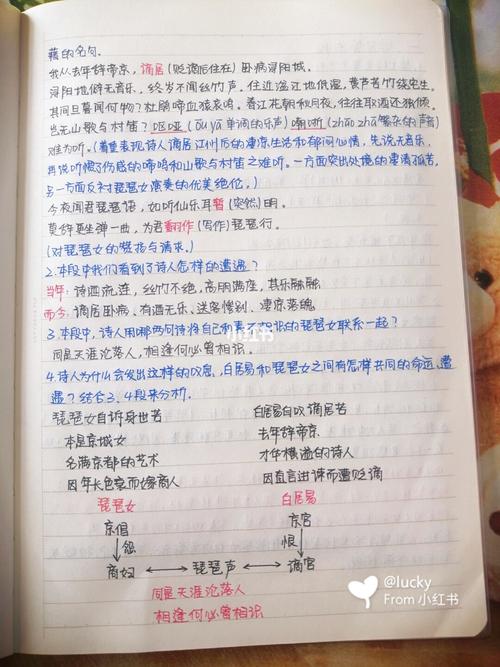 藉的名句.
我从去年辞帝京，谪居（贬谪后住在）卧病浔阳城。
浔阳地僻无音乐，终岁不闻丝竹声。住近湓江地低湿，黄芦苦竹绕宅生。
其间旦暮闻何物？杜鹃啼血猿哀鸣。春江花朝秋月夜，往往取酒还独倾。
岂无山歌与村笛？呕哑（ōu yā 单调的乐声）嘲哳（zhāo zhā 繁杂的声音）
难为听。（着重表现诗人谪居江州后的凄凉生活和郁闷心情，先说无音乐，
再说听惯了伤感的啼鸣和山歌与村笛之难听。一方面突出处境的凄清孤苦，
另一方面反衬琵琶女演奏的优美绝伦。）
今夜闻君琵琶语，如听仙乐耳暂（突然）明。
莫辞更坐弹一曲，为君翻作（写作）琵琶行。
（对琵琶女的赞扬与请求。）
2.本段中我们看到了诗人怎样的遭遇？
当年：诗酒流连，丝竹不绝，高朋满座，其乐融融
而今：谪居卧病、有酒无乐、送客惨别、凄凉落魄
3.本段中，诗人用哪两句诗将自己和素不相识的琵琶女联系一起？
同是天涯沦落人，相逢何必曾相识。
4.诗人为什么会发出这样的叹息，白居易和琵琶女之间有怎样共同的命运、遭
遇？结合3、4段来分析.
琵琶女自诉身世苦 白居易自叹谪居苦
本是京城女 去年辞帝京
名满京都的艺术 才华横溢的诗人
因年长色衰而嫁商人 因直言进谏而遭贬谪
琵琶女 白居易
京倡 京官
怨 恨
商妇 琵琶声 谪官
同是天涯沦落人
相逢何必曾相识
小红书
@lucky
From 小红书